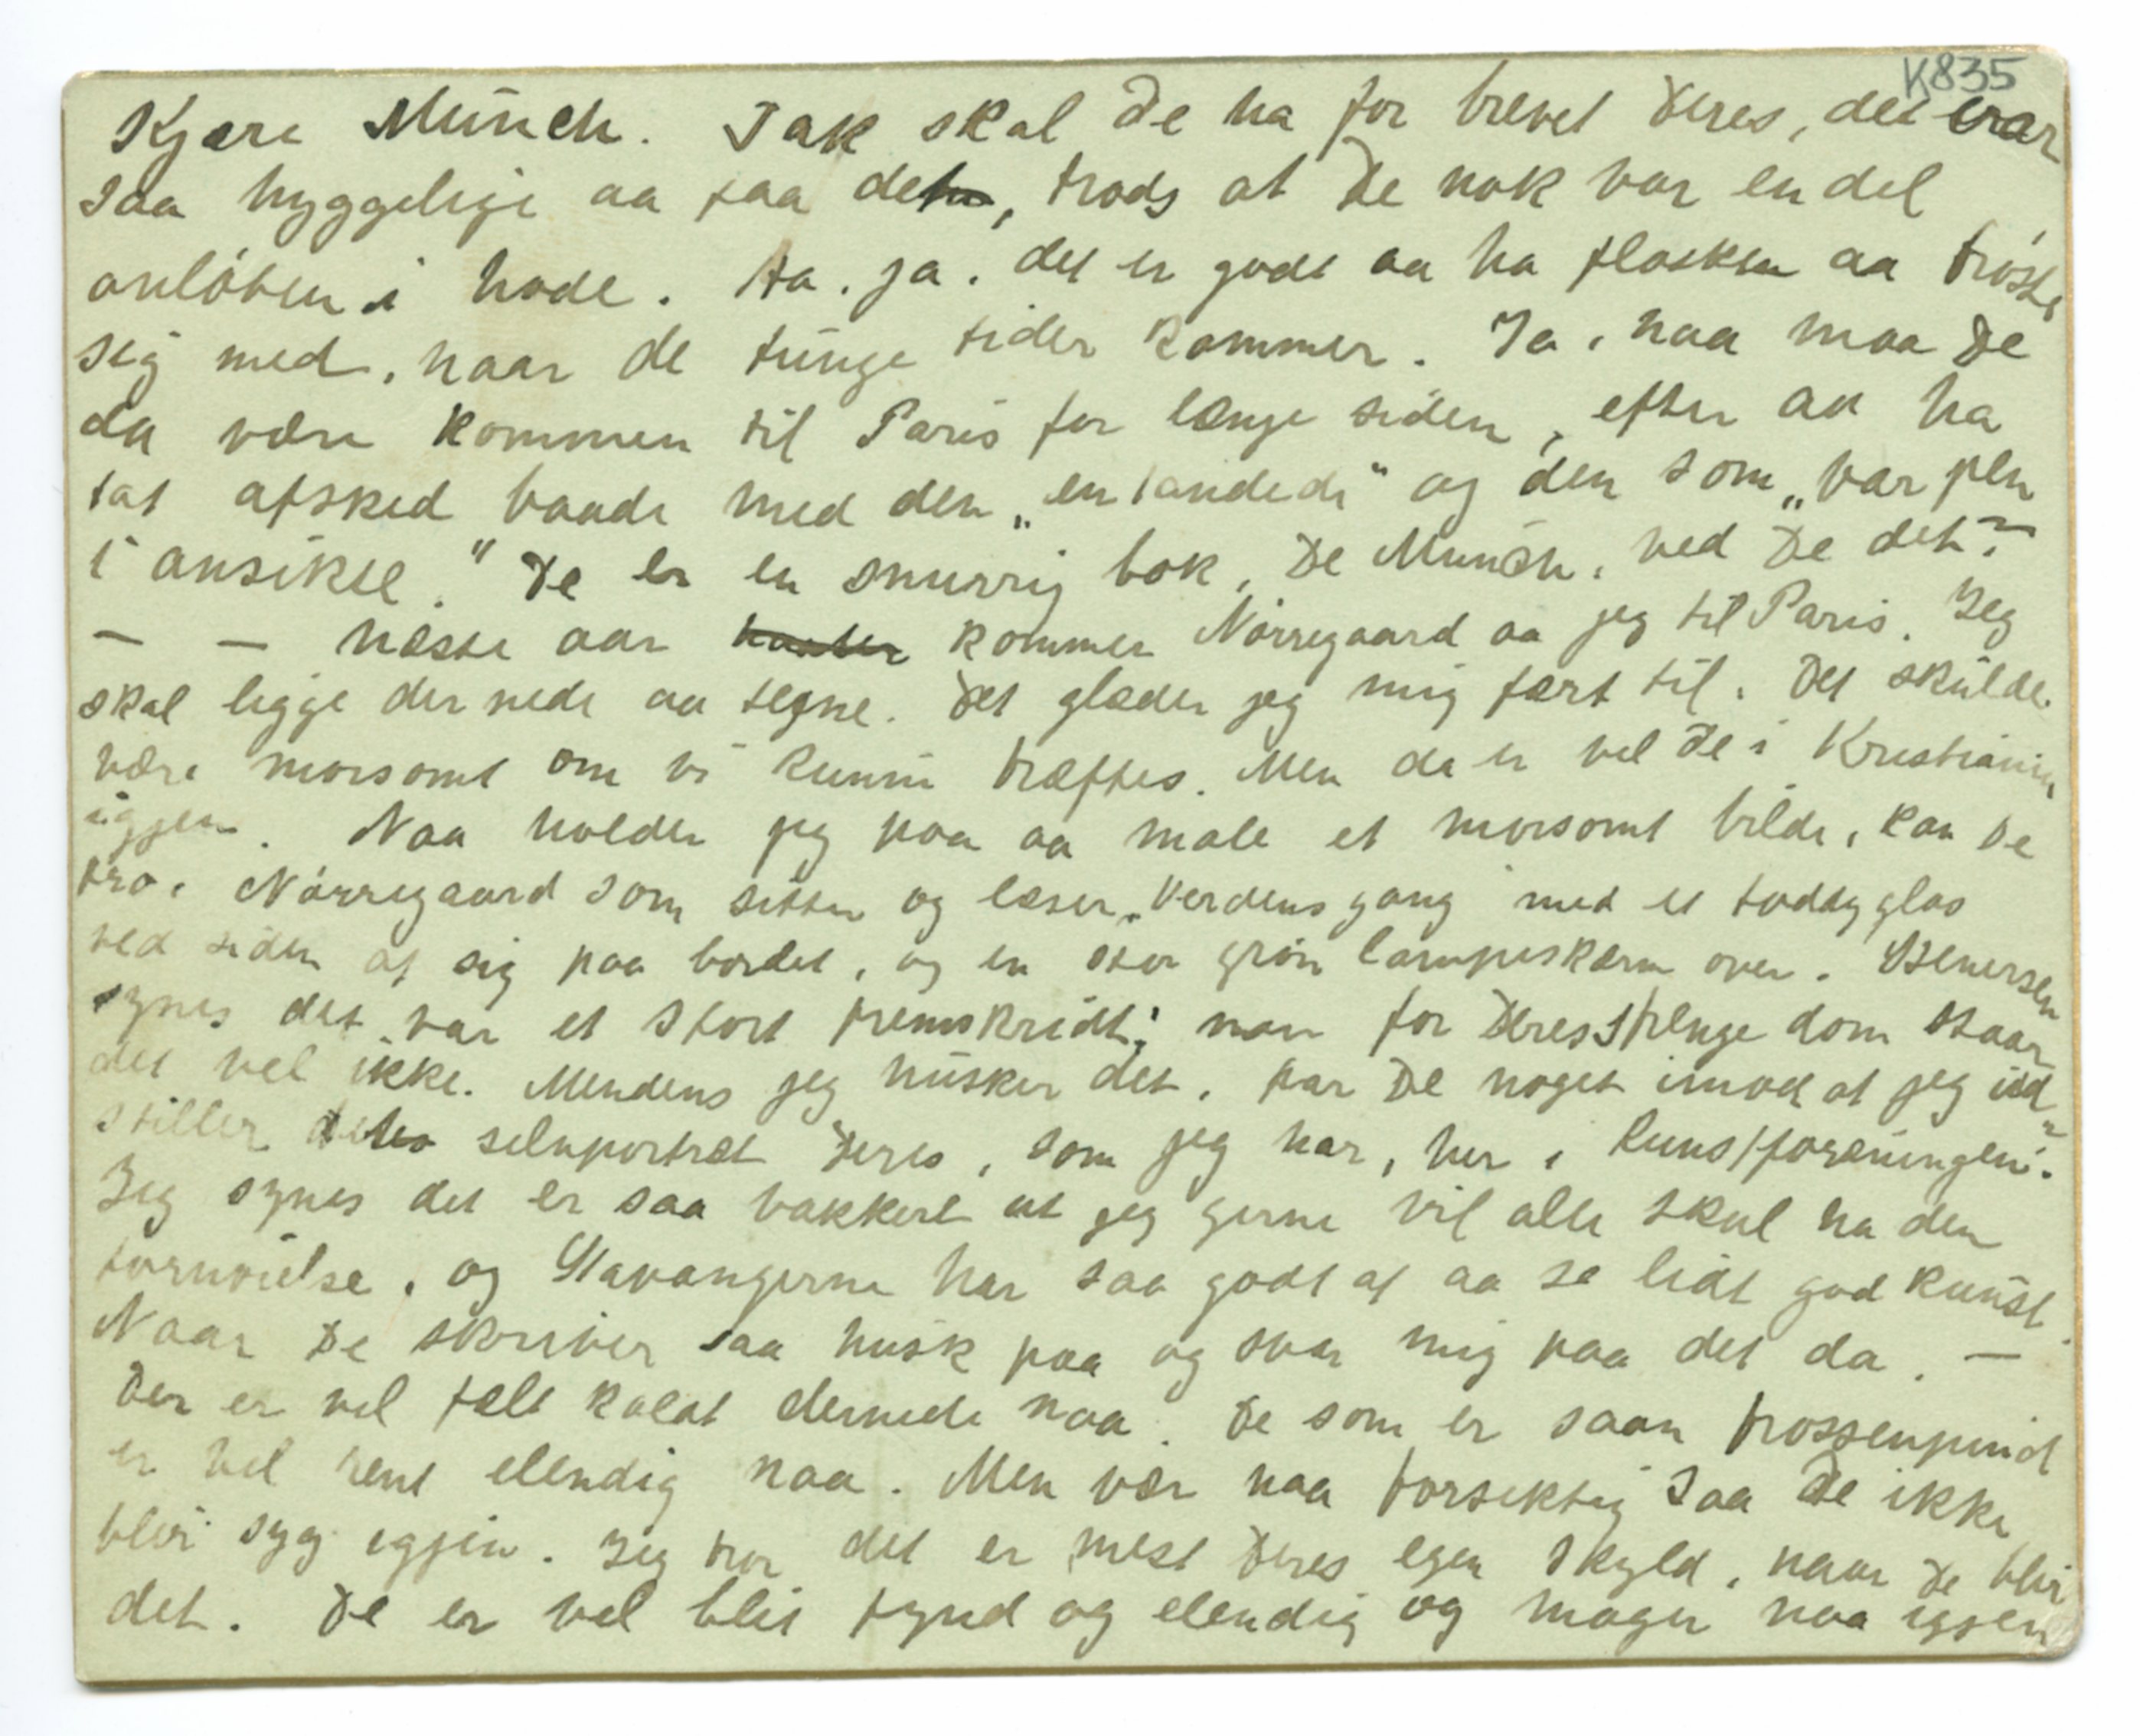 K835
Kjære Munch. Tak skal De ha for brevet Deres, det var
saa hyggelije aa faa det, trods at De nok var en del
anløben i hode. Ha. ja. det er godt aa ha flasken aa trøste
sig med, naar de tunge tider kommer. Ja, naa maa De
da være kommen til Paris for længe siden, efter aa ha
tat afsked baade med den „entandede" og den som „var pen
i ansikte." De er en snurrig bok, De Munch, ved De det?
— — Næste aar kommer Nörregaard aa jeg til Paris. Jeg
skal ligge der nede aa tegne. Det glæder jeg mig fært til. Det skulde
være morsomt om vi kunne træffes. Men da er vel De i Kristiania
igjen. Naa holder jeg paa aa male et morsomt bilde, kan De
tro. Nörregaard som sitter og læser „Verdens gang" med et toddyglas
ved siden af sig paa bordet, og en stor grön lampeskærm over.
synes det var et stort fremskridt; men for Deres strenge dom staar
det vel ikke. Mendens jeg husker det, har De noget imod at jeg ud-
stiller selvportræt Deres, som jeg har, her i Kunstforeningen?
Jeg synes det er saa vakkert at jeg gerne vil alle skal ha den
fornøielse, og Stavangerne har saa godt af aa se lidt god kunst.
Naar De skriver saa husk paa og svar mig paa det da. —
Der er vel fælt kaldt dernede naa. De som er saan frossenpind
er vel rent elendig naa. Men vær naa forsektig saa De ikke
blir syg egjen. Jeg tror det er mest Deres egen skyld, naar De blir
det. De er vel blit tynd og elendig og mager naa igjen